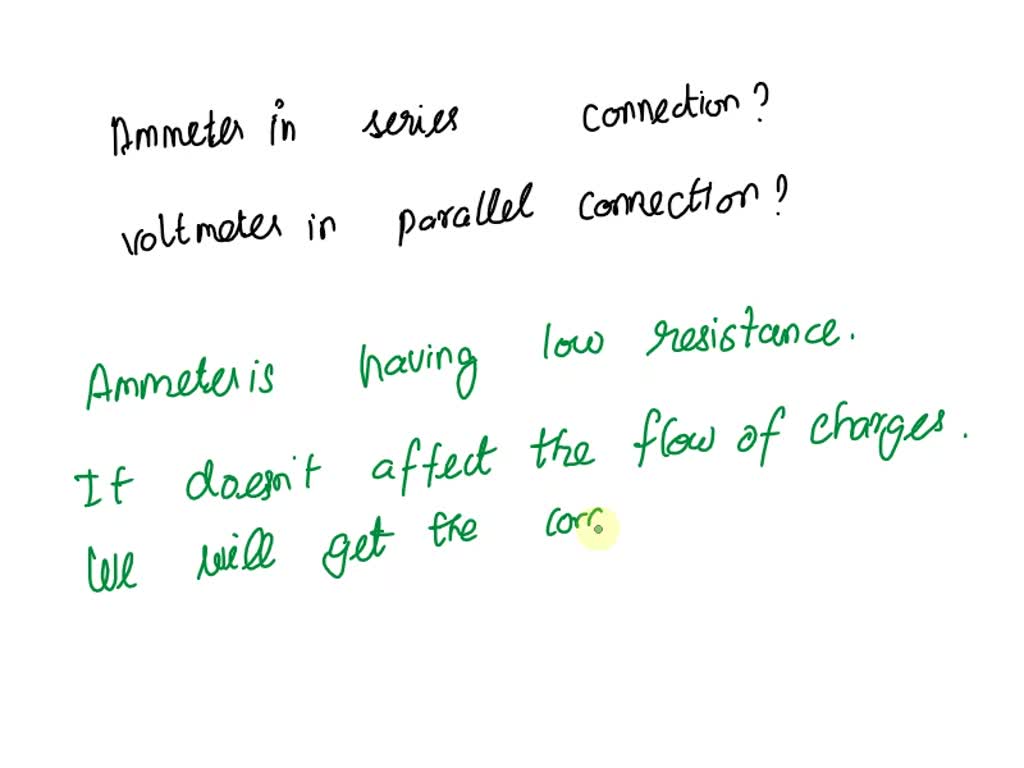 Ammeter in series connection?
voltmeter in parallel connection?
Ammeter is having low resistance.
It doesn't affect the flow of charges.
We will get the corr